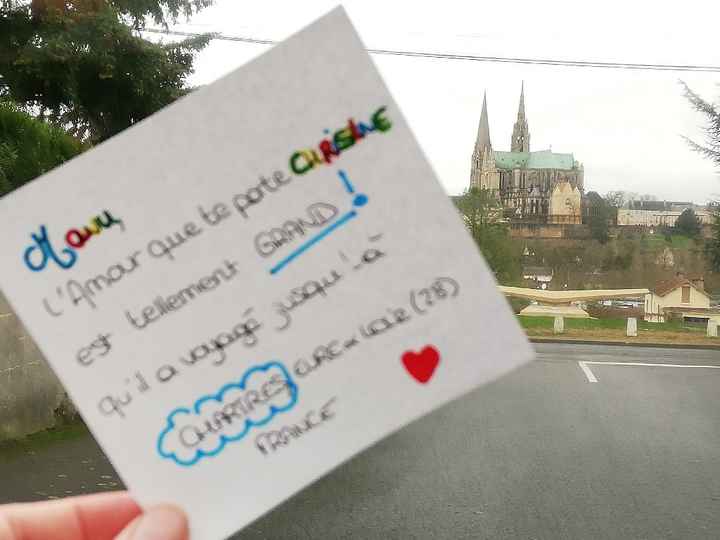 Manu
L'Amour que te porte CHRISTINE
est tellement GRAND!
qu'il a voyagé jusqu'-à
CHARTRES EURE et Loir (28)
FRANCE